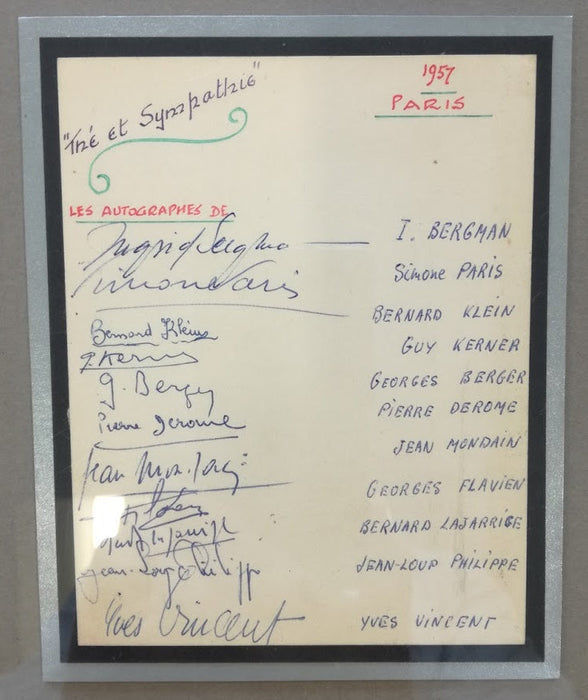 1957
PARIS
"Thé et Sympathie"
LES AUTOGRAPHES DE
Ingrid Bergman I. BERGMAN
Simone Paris Simone PARIS
BERNARD KLEIN
Bernard Klein
GUY KERNER
G. Kerner
GEORGES BERGER
G. Berger
PIERRE DEROME
Pierre Derome
JEAN MONDAIN
Jean Mondain
GEORGES FLAVIEN
BERNARD LAJARRIGE
JEAN-LOUP PHILIPPE
Jean-Loup Philippe
Yves Vincent YVES VINCENT